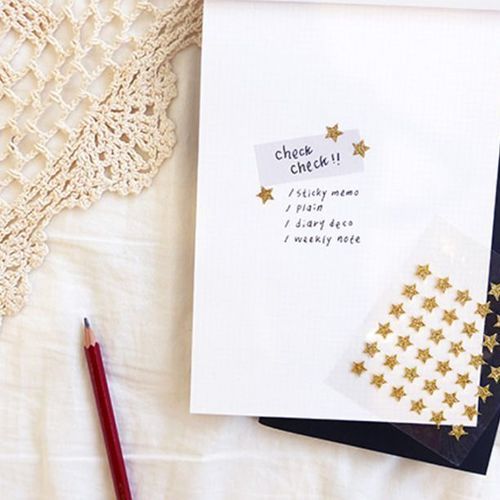 check
check!!
/ sticky memo
/ plain
/ diary deco
/ weekly note